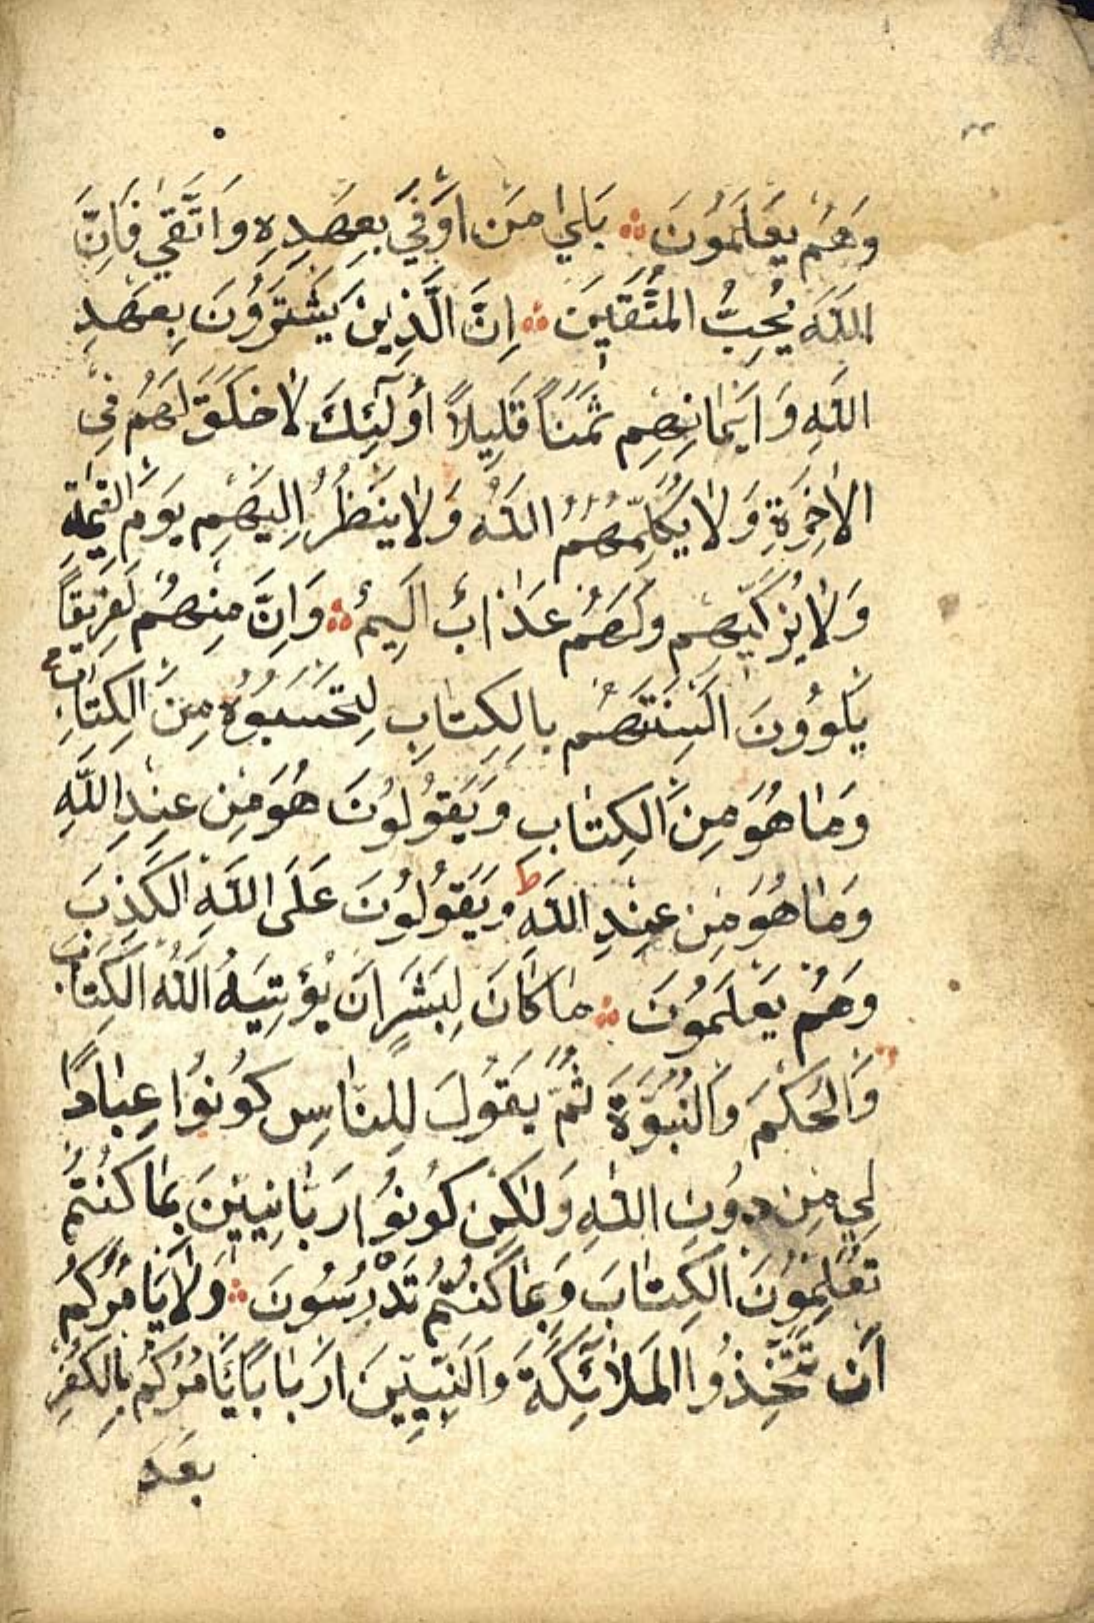 وَهُم يَعلَمُونَ ؞ بَلٰي مَن اَوفٰي بِعَهدِهِ وَاتَّقٰي فَاِنَّ
اللّٰهَ يُحِبُّ المُتَّقِينَ ؞ اِنَّ الَّذِينَ يَشتَرُونَ بِعَهدِ
اللّٰهِ وَ اَيمَانِهِم ثَمَناً قَلِيلاً أُولٰئِكَ لاٰ خَلَاقَ لَهُم فِي
الاٰخِرَةِ وَلاٰ يُكَلِّمُهُمُ اللّٰهُ وَلاٰ يَنظُرُ اِلَيهِم يَومَ القِيٰمَةِ
وَلاٰ يُزَكِّيهِم وَلَهُم عَذٰابٌ اَلِيمٌ ؞ وَ اِنَّ مِنهُم لَفَرِيقاً
يَلوُونَ اَلسِنَتَهُم بِالكِتٰابِ لِتَحسَبُوهُ مِنَ الكِتٰابِ
وَمٰا هُوَ مِنَ الكِتٰابِ وَيَقُولُونَ هُوَ مِن عِندِ اللّٰهِ
وَمٰا هُوَ مِن عِندِ اللّٰهِ ط وَيَقُولُونَ عَلَى اللّٰهِ الكَذِبَ
وَهُم يَعلَمُونَ ؞ مٰا كٰانَ لِبَشَرٍ اَن يُؤتِيَهُ اللّٰهُ الكِتٰابَ
وَالحُكمَ وَالنُّبُوَّةَ ثُمَّ يَقُولَ لِلنّٰاسِ كُونُوا عِبٰاداً
لِي مِن دُونِ اللّٰهِ وَلٰكِن كُونُوا رَبّٰانِيّينَ بِمٰا كُنتُم
تُعَلِّمُونَ الكِتٰابَ وَبِمٰا كُنتُم تَدْرُسُونَ ؞ وَلاٰ يَأمُرُكُم
اَن تَتَّخِذُوا المَلاٰئِكَةَ وَالنَّبِيّينَ اَربٰاباً اَيَأمُرُكُم بِالكُفرِ
بَعدَ